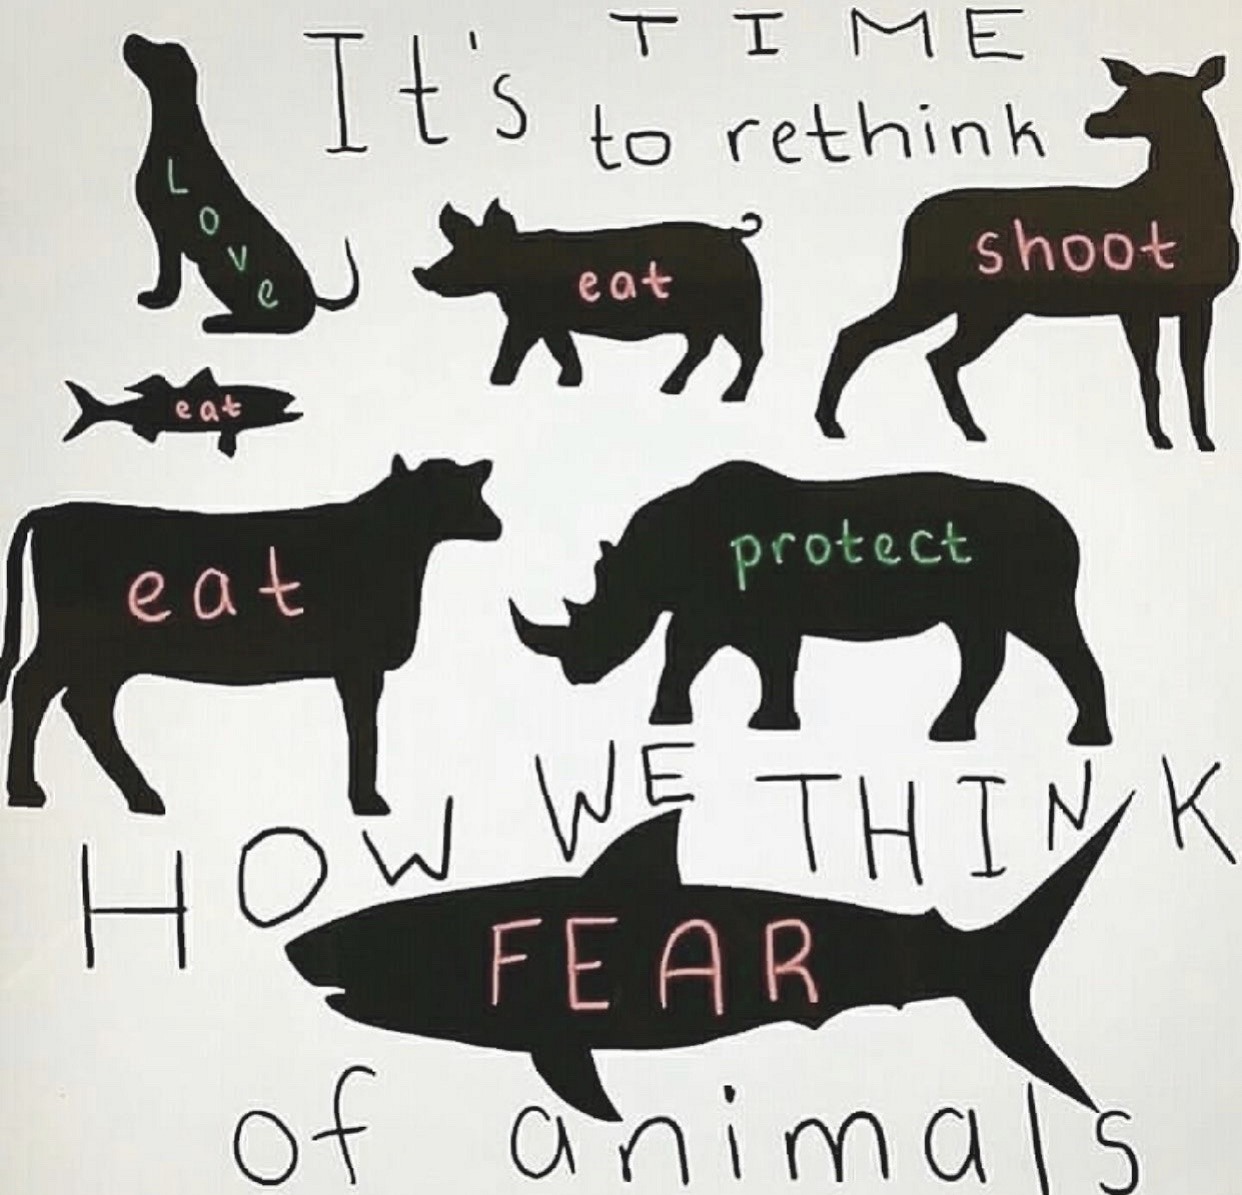 It's TIME
to rethink
Love
eat
shoot
eat
eat
protect
HOW WE THINK
FEAR
of animals